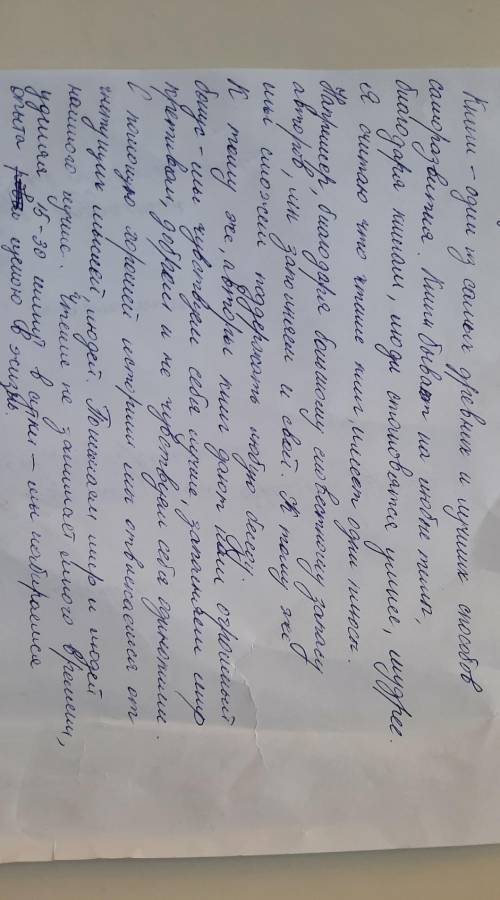 Книги - одни из самых древних и лучших способов
саморазвития. Книги бывают на любые темы,
благодаря книгам, люди становятся умнее, мудрее.
Я считаю что чтение книг, имеет одни плюсы.
Например, благодаря большому словестному запасу
авторов, мы запомнем и свой. К тому же
мы сможем поддержать любую беседу.
К тому же, авторы книг дают Вам огромный
бонус - мы чувствуем себя лучше, запоняем мир
добрым и не чувствуем себя одинокими.
С помощью хорошей истории мы отвлекаемся от
мыслей, людей. Понимаем мир и людей
намного лучше. Чтение не занимает много времени,
уделяя 25-30 минут в сутки - мы набираемся
опыта целою в жизнь.